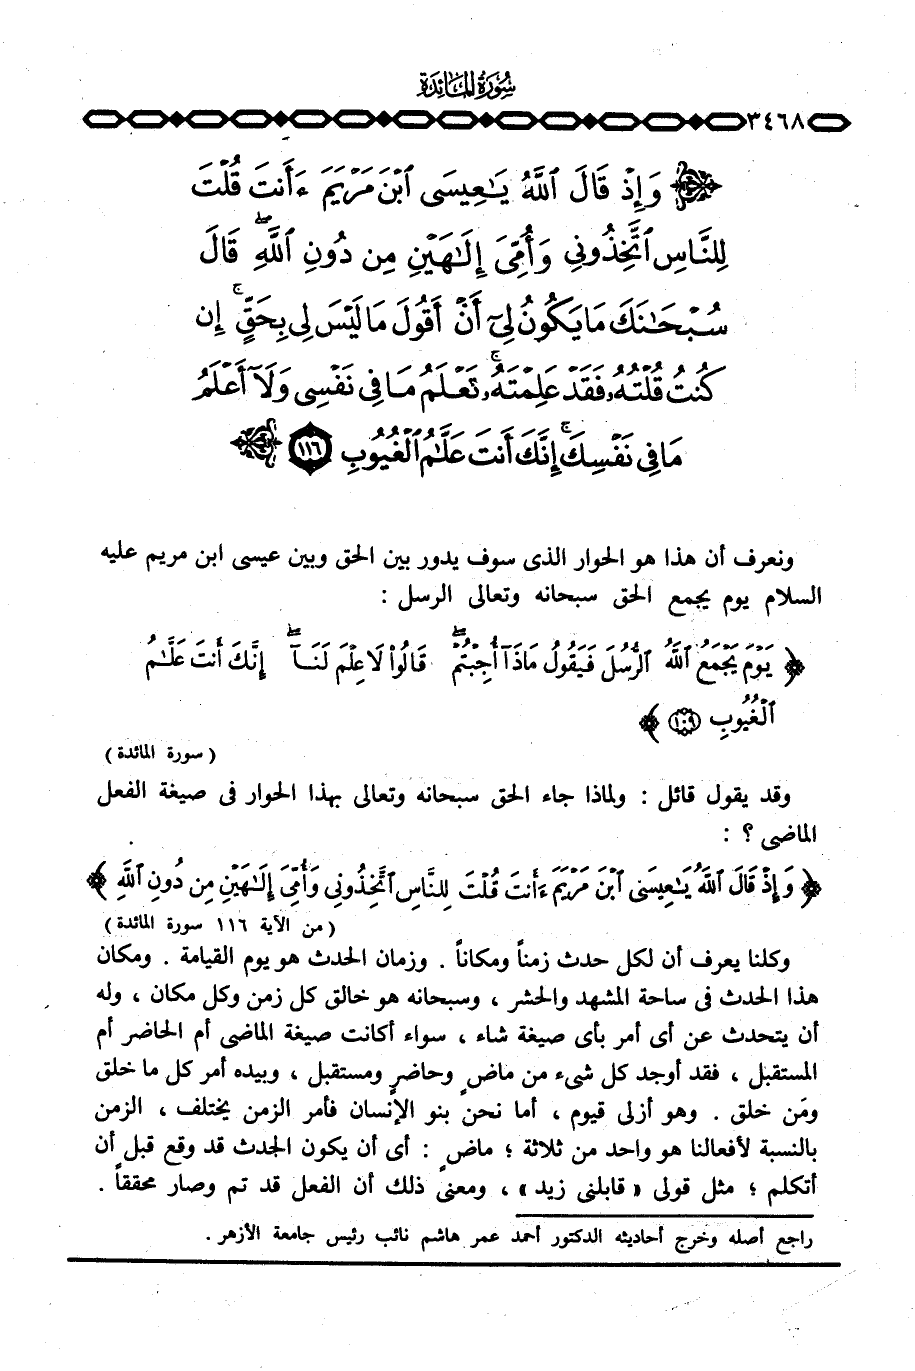 سُورَةُ المَائِدَة
٣٤٦٨
وَإِذْ قَالَ ٱللَّهُ يَـٰعِيسَى ٱبْنَ مَرْيَمَ ءَأَنتَ قُلْتَ
لِلنَّاسِ ٱتَّخِذُونِى وَأُمِّىَ إِلَـٰهَيْنِ مِن دُونِ ٱللَّهِ ۖ قَالَ
سُبْحَـٰنَكَ مَا يَكُونُ لِىٓ أَنْ أَقُولَ مَا لَيْسَ لِى بِحَقٍّ ۚ إِن
كُنتُ قُلْتُهُۥ فَقَدْ عَلِمْتَهُۥ ۚ تَعْلَمُ مَا فِى نَفْسِى وَلَآ أَعْلَمُ
مَا فِى نَفْسِكَ ۚ إِنَّكَ أَنتَ عَلَّـٰمُ ٱلْغُيُوبِ ١١٦
ونعرف أن هذا هو الحوار الذى سوف يدور بين الحق وبين عيسى ابن مريم عليه
السلام يوم يجمع الحق سبحانه وتعالى الرسل :
﴿ يَوْمَ يَجْمَعُ ٱللَّهُ ٱلرُّسُلَ فَيَقُولُ مَاذَآ أُجِبْتُمْ ۖ قَالُوا۟ لَا عِلْمَ لَنَآ ۖ إِنَّكَ أَنتَ عَلَّـٰمُ
ٱلْغُيُوبِ ١٠٩ ﴾
( سورة المائدة )
وقد يقول قائل : ولماذا جاء الحق سبحانه وتعالى بهذا الحوار فى صيغة الفعل
الماضى ؟ :
﴿ وَإِذْ قَالَ ٱللَّهُ يَـٰعِيسَى ٱبْنَ مَرْيَمَ ءَأَنتَ قُلْتَ لِلنَّاسِ ٱتَّخِذُونِى وَأُمِّىَ إِلَـٰهَيْنِ مِن دُونِ ٱللَّهِ ﴾
( من الآية ١١٦ سورة المائدة )
وكلنا يعرف أن لكل حدث زمناً ومكاناً . وزمان الحدث هو يوم القيامة . ومكان
هذا الحدث فى ساحة المشهد والحشر ، وسبحانه هو خالق كل زمن وكل مكان ، وله
أن يتحدث عن أى أمر بأى صيغة شاء ، سواء أكانت صيغة الماضى أم الحاضر أم
المستقبل ، فقد أوجد كل شىء من ماضٍ وحاضرٍ ومستقبل ، وبيده أمر كل ما خلق
ومَن خلق . وهو أزلى قيوم ، أما نحن بنو الإنسان فأمر الزمن يختلف ، الزمن
بالنسبة لأفعالنا هو واحد من ثلاثة ؛ ماضٍ : أى أن يكون الحدث قد وقع قبل أن
أتكلم ؛ مثل قولى « قابلنى زيد » ، ومعنى ذلك أن الفعل قد تم وصار محققاً .
راجع أصله وخرج أحاديثه الدكتور أحمد عمر هاشم نائب رئيس جامعة الأزهر .